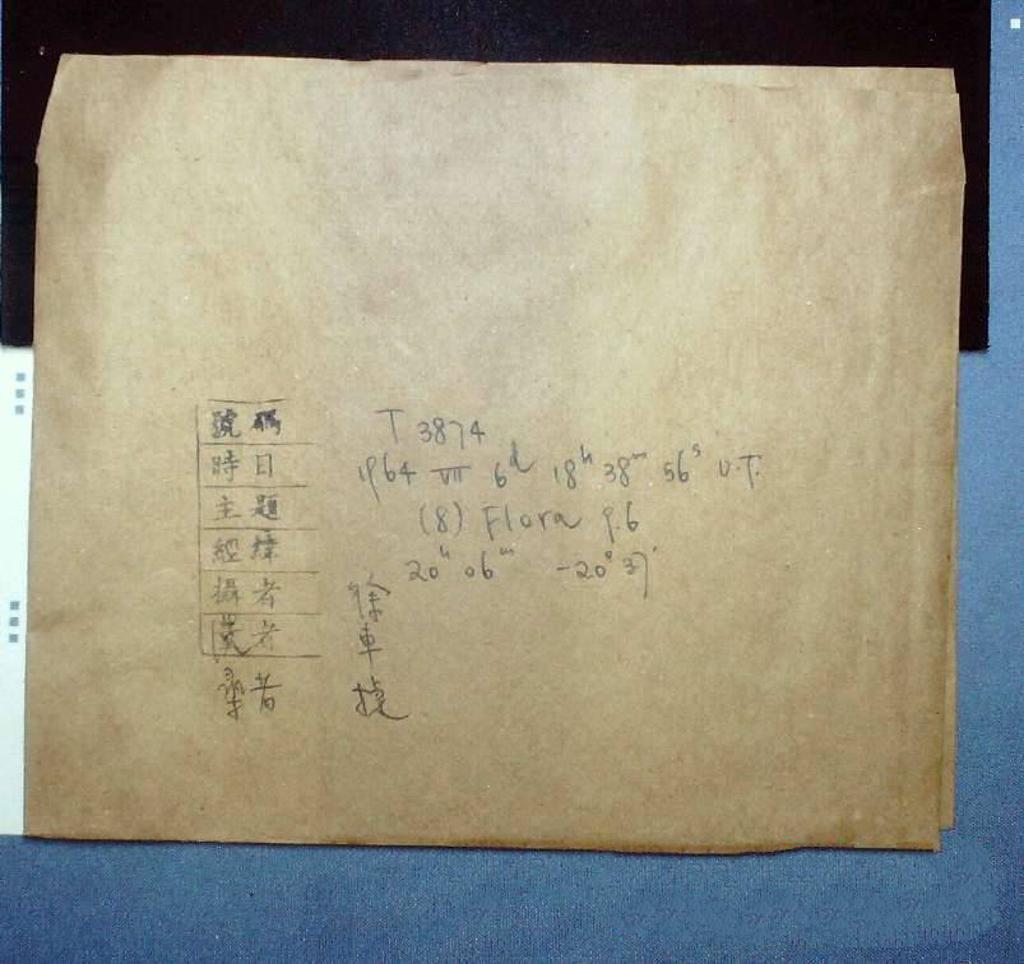 號碼 T 3874
時日 1964 VII 6ᵈ 18ʰ 38ᵐ 56ˢ U.T.
主題 (8) Flora 9.6
經緯 20ʰ 06ᵐ -20° 37'
攝者 徐
者 車
者